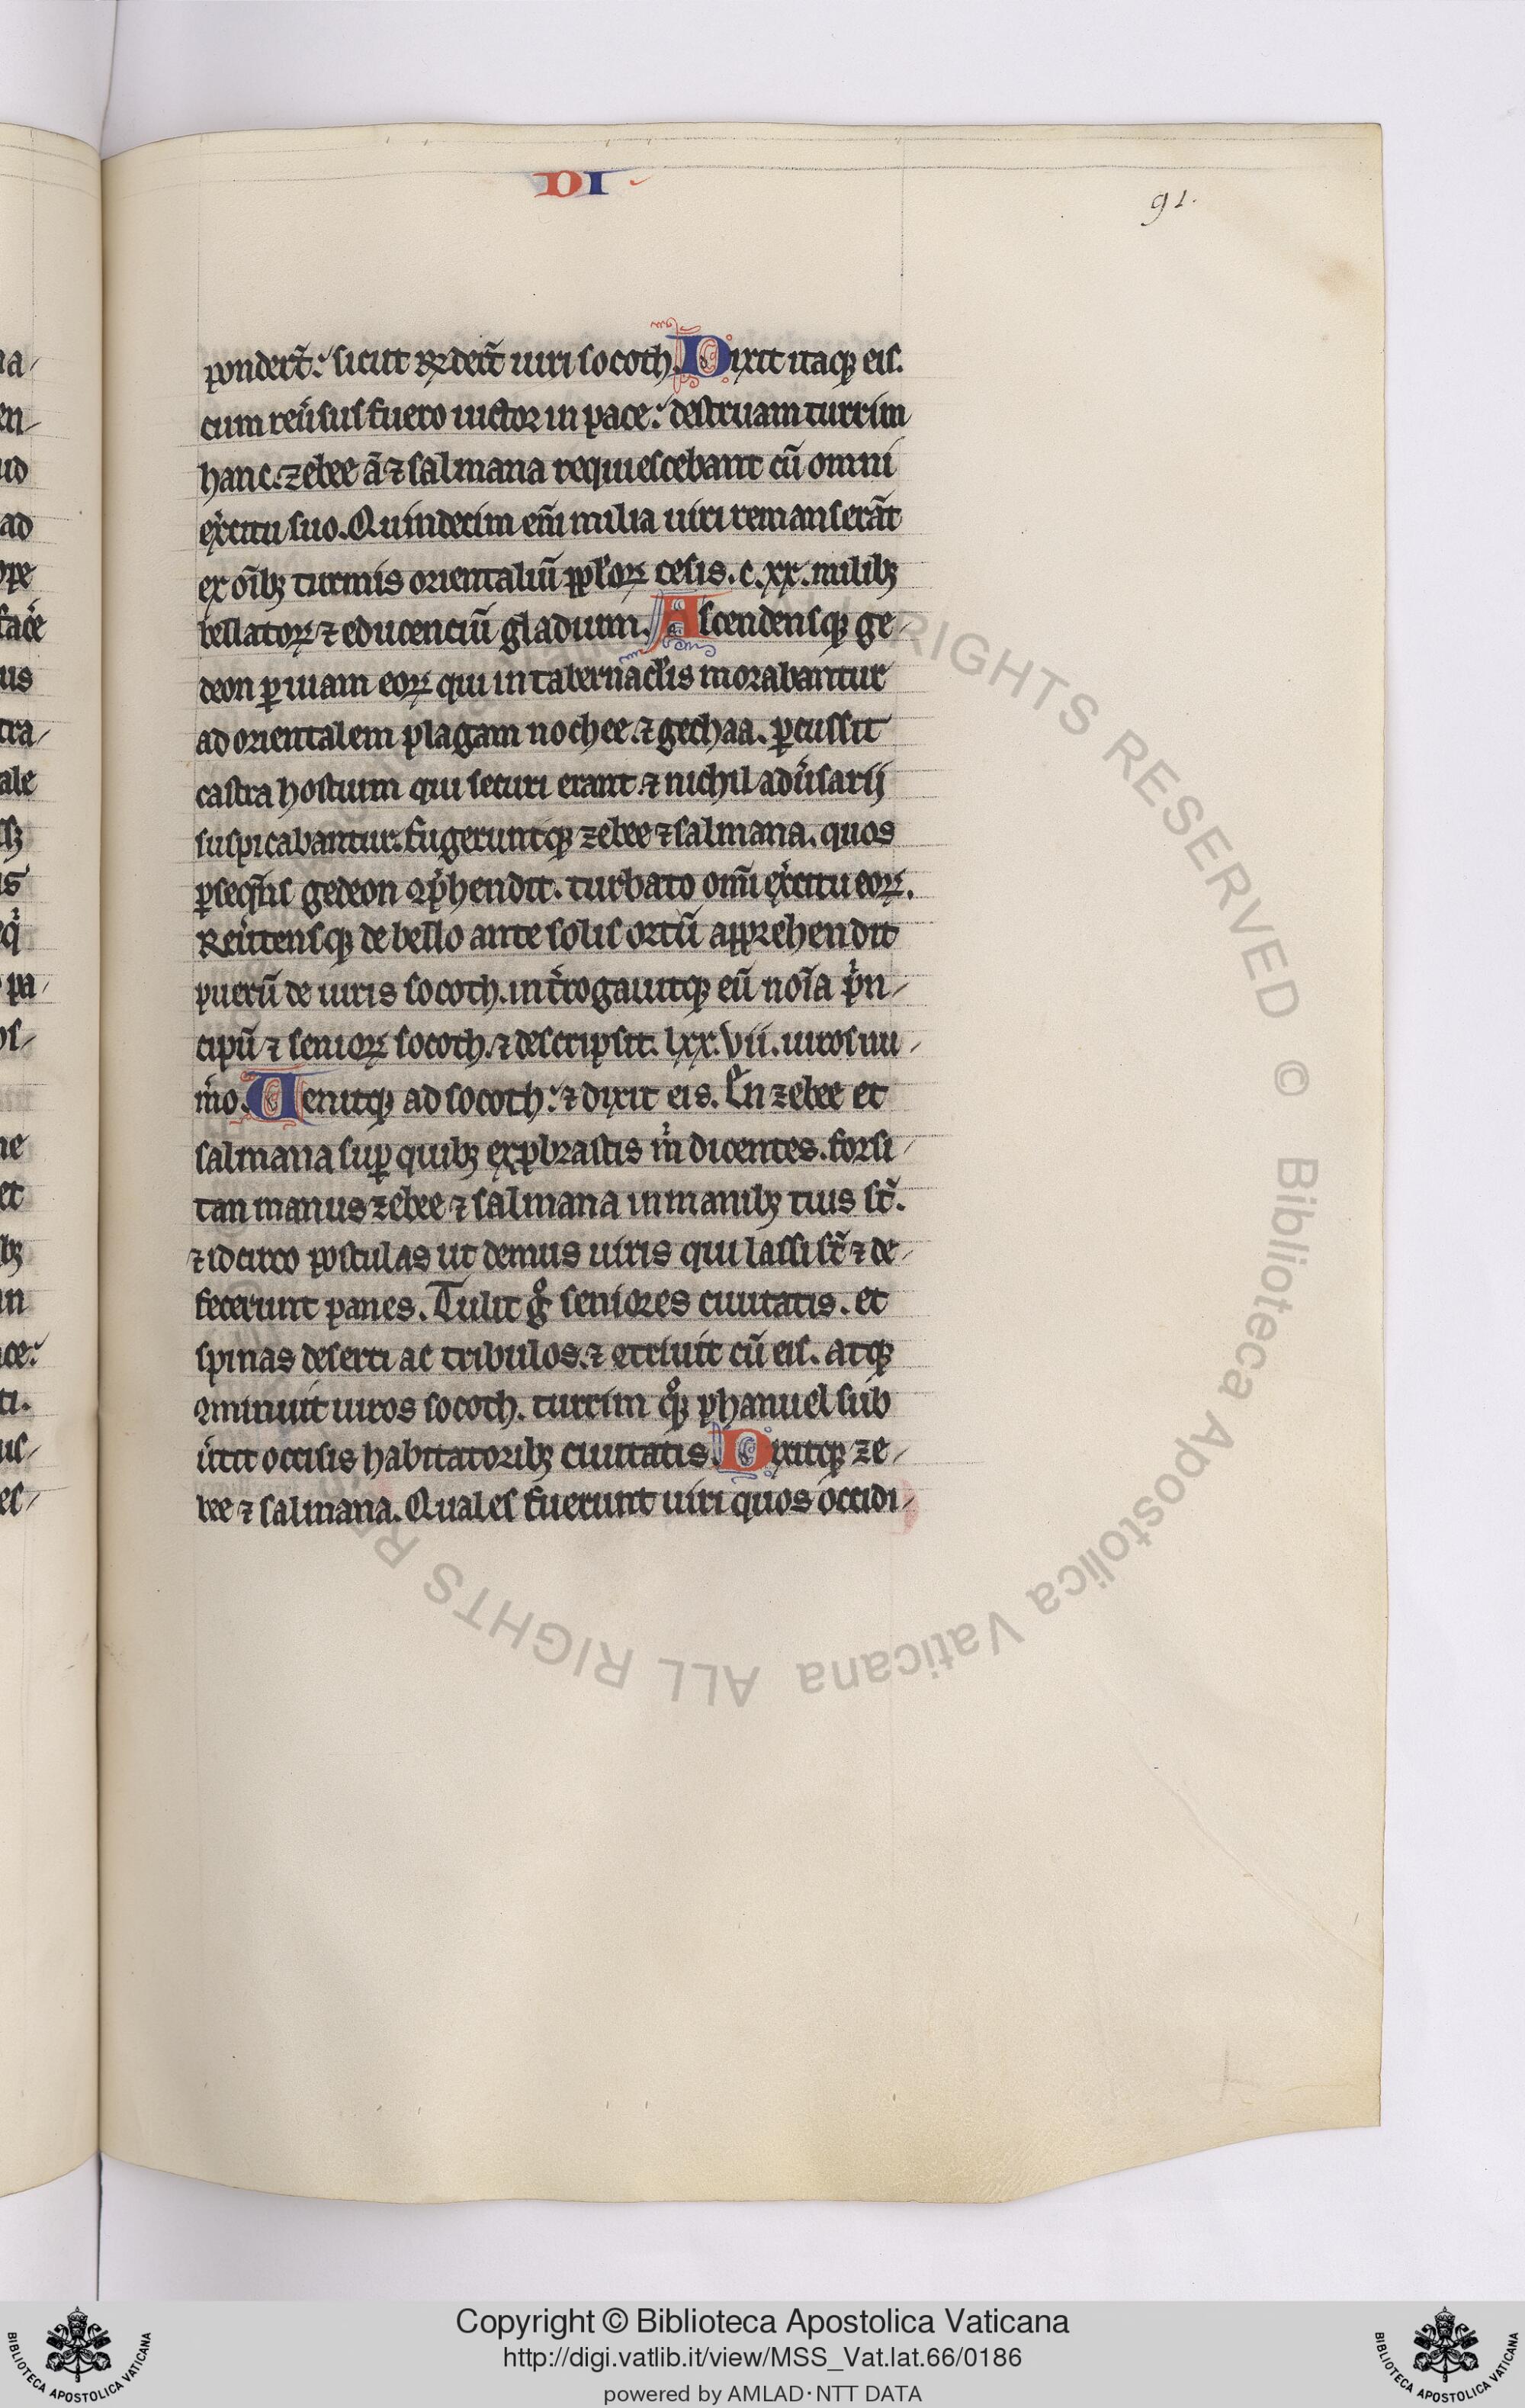 DI
91.
pondert̃. sicut rñdert̃ uiri socoth. Dixit itaqꝫ eis.
cum reũsus fuero uictor in pace. destruam turrim
hanc. zebee ã ⁊ salmana requiescebant cũ omni
exͥcitu suo. Quindecim em̃ milia uiri remanserãt
ex oĩbꝫ turmis orientaliũ ppl̃oꝝ cesis. c. xx. milibꝫ
bellatoꝝ ⁊ educenciũ gladium. Ascendensqꝫ ge-
deon ꝑ uiam eoꝝ qui in tabernacl̃is morabantur
ad orientalem plagam nochee. ⁊ gechaa. ꝑcussit
castra hostium qui securi erant. ⁊ nichil adũsarij
suspicabantur. fugeruntqꝫ zebee ⁊ salmana. quos
ꝑseqñs gedeon ꝯp̃hendit. turbato om̃i exͥcitu eoꝝ.
Reũtensqꝫ de bello ante solis ortũ apprehendit
puerũ de uiris socoth. int̃rogauitqꝫ eũ noĩa pͥn-
cipũ ⁊ senioꝝ socoth. ⁊ descripsit. lxx. vii. uiros nu-
m̃o. Uenitqꝫ ad socoth. ⁊ dixit eis. En zebee et
salmana suꝑ quibꝫ exꝓbrastis mͥ dicentes. forsi-
tan manus zebee ⁊ salmana in manibꝫ tuis st̃.
⁊ idcirco postulas ut demus uiris qui lassi st̃ ⁊ de-
fecerunt panes. Tulit gͦ seniores ciuitatis. et
spinas deserti ac tribulos. ⁊ ꝯtriuit cũ eis. atqꝫ
ꝯminuit uiros socoth. turrim qͦꝫ phanuel sub
ũtit occisis habitatoribꝫ ciuitatis. Dixitqꝫ ze-
bee ⁊ salmana. Quales fuerunt uiri quos occidi-
ALL RIGHTS RESERVED © Biblioteca Apostolica Vaticana ALL RIGHTS RES
Copyright © Biblioteca Apostolica Vaticana
http://digi.vatlib.it/view/MSS_Vat.lat.66/0186
powered by AMLAD·NTT DATA
BIBLIOTECA APOSTOLICA VATICANA
BIBLIOTECA APOSTOLICA VATICANA